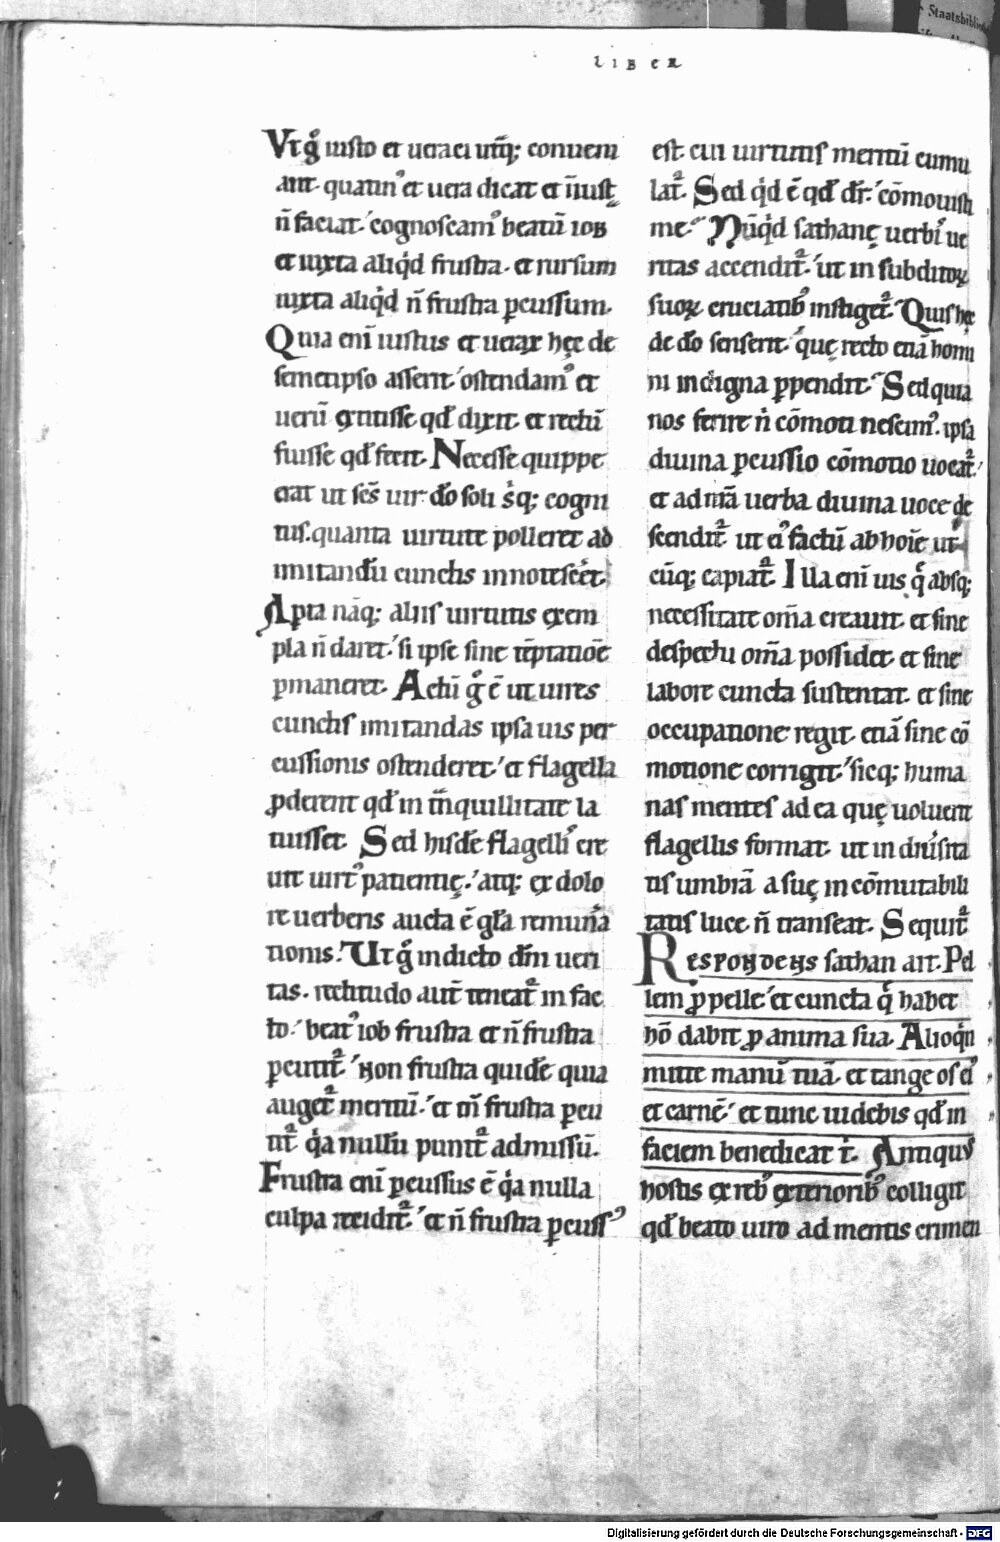 LIBER
Vt g̊ iusto et ueraci utrīq; conueni
ant. quatin᷒ et uera dicat et iniust
n̄ faciat. cognoscam᷒ beatū iob
et iuxta aliqͥd frustra. et rursum
iuxta aliqͥd n̄ frustra ꝑcussum.
Quia enī iustus et uerax hęc de
semetipso asserit. ostendam᷒ et
uerū ꝯtulisse qd̄ dixit. et rectū
fuisse qd̄ fecit. Necesse quippe
erat ut sc̄s uir do̅ soli sͥq; cogni
tus. quanta uirtute polleret ad
imitandū cunctis innotesceret.
Apta nāq; aliis uirtutis exem
pla n̄ daret. si ipse sine tēptatiōe
ꝑmaneret. Actū g̊ ē ut uires
cunctis imitandas ipsa uis per
cussionis ostenderet. et flagella
ꝓderent qd̄ in tᷓnquillitate la
tuisset. Sed hisdē flagellis cre
uit uirt᷒ patientię. atq; ex dolo
re uerberis aucta ē glā remunᷓa
tionis. Ut g̊ in dicto dn̄i ueri
tas. rectitudo aut̄ teneatᷣ in fac
to. beat᷒ iob frustra et n̄ frustra
ꝑcutitᷣ. Non frustra quidē quia
augetᷣ meritū. et tn̄ frustra ꝑcu
titᷣ qͥa nullū punitᷣ admissū.
Frustra enī ꝑcussus ē qͥa nulla
culpa reciditᷣ. et n̄ frustra ꝑcuss᷒
est. cui uirtutis meritū cumu
latᷣ. Sed qͥd ē qd̄ dr̄. cōmouisti
me. Nūqͥd sathanę uerbis ue
ritas accenditᷣ. ut in subditoꝝ
suoꝝ cruciatib᷒ instigetᷣ. Quis hęc
de do̅ senserit. quę recto etiā homi
ni indigna ꝑpendit. Sed quia
nos ferire n̄ cōmoti nescim᷒. ipsa
diuina ꝑcussio cōmotio uocatᷣ.
et ad nr̄a uerba diuina uoce de
scenditᷣ ut ei᷒ factū ab hoīe ut
cūq; capiatᷣ. Illa enī uis qᷓ absq;
necessitate om̄a creauit. et sine
despectu om̄a possidet. et sine
labore cuncta sustentat. et sine
occupatione regit. etiā sine cō
motione corrigit. sicq; huma
nas mentes ad ea quę uoluerit
flagellis format. ut in diuͥsita
tis umbrā a suę incōmutabili
tatis luce n̄ transeat. Sequitᷣ
Respondens sathan ait. Pel
lem ꝓ pelle. et cuncta qᷓ habet
hō dabit ꝓ anima sua. Alioqͥn
mitte manū tuā. et tange os ei᷒
et carnē. et tunc uidebis qd̄ in
faciem benedicat tͥ. Antiquus
hostis ex reb᷒ exteriorib᷒ colligit
qd̄ beato uiro ad mentis crimen
Staatsbibliothek
Digitalisierung gefördert durch die Deutsche Forschungsgemeinschaft - DFG